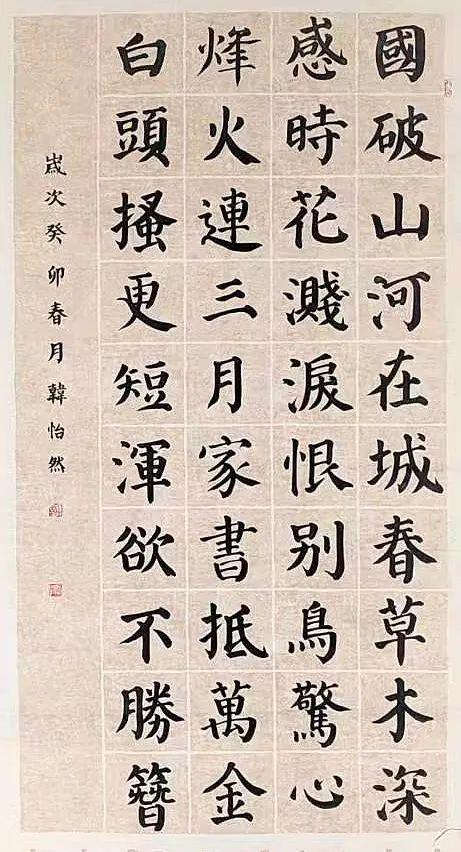 國破山河在城春草木深
感時花濺淚恨别鳥驚心
烽火連三月家書抵萬金
白頭搔更短渾欲不勝簪
歲次癸卯春月韓怡然